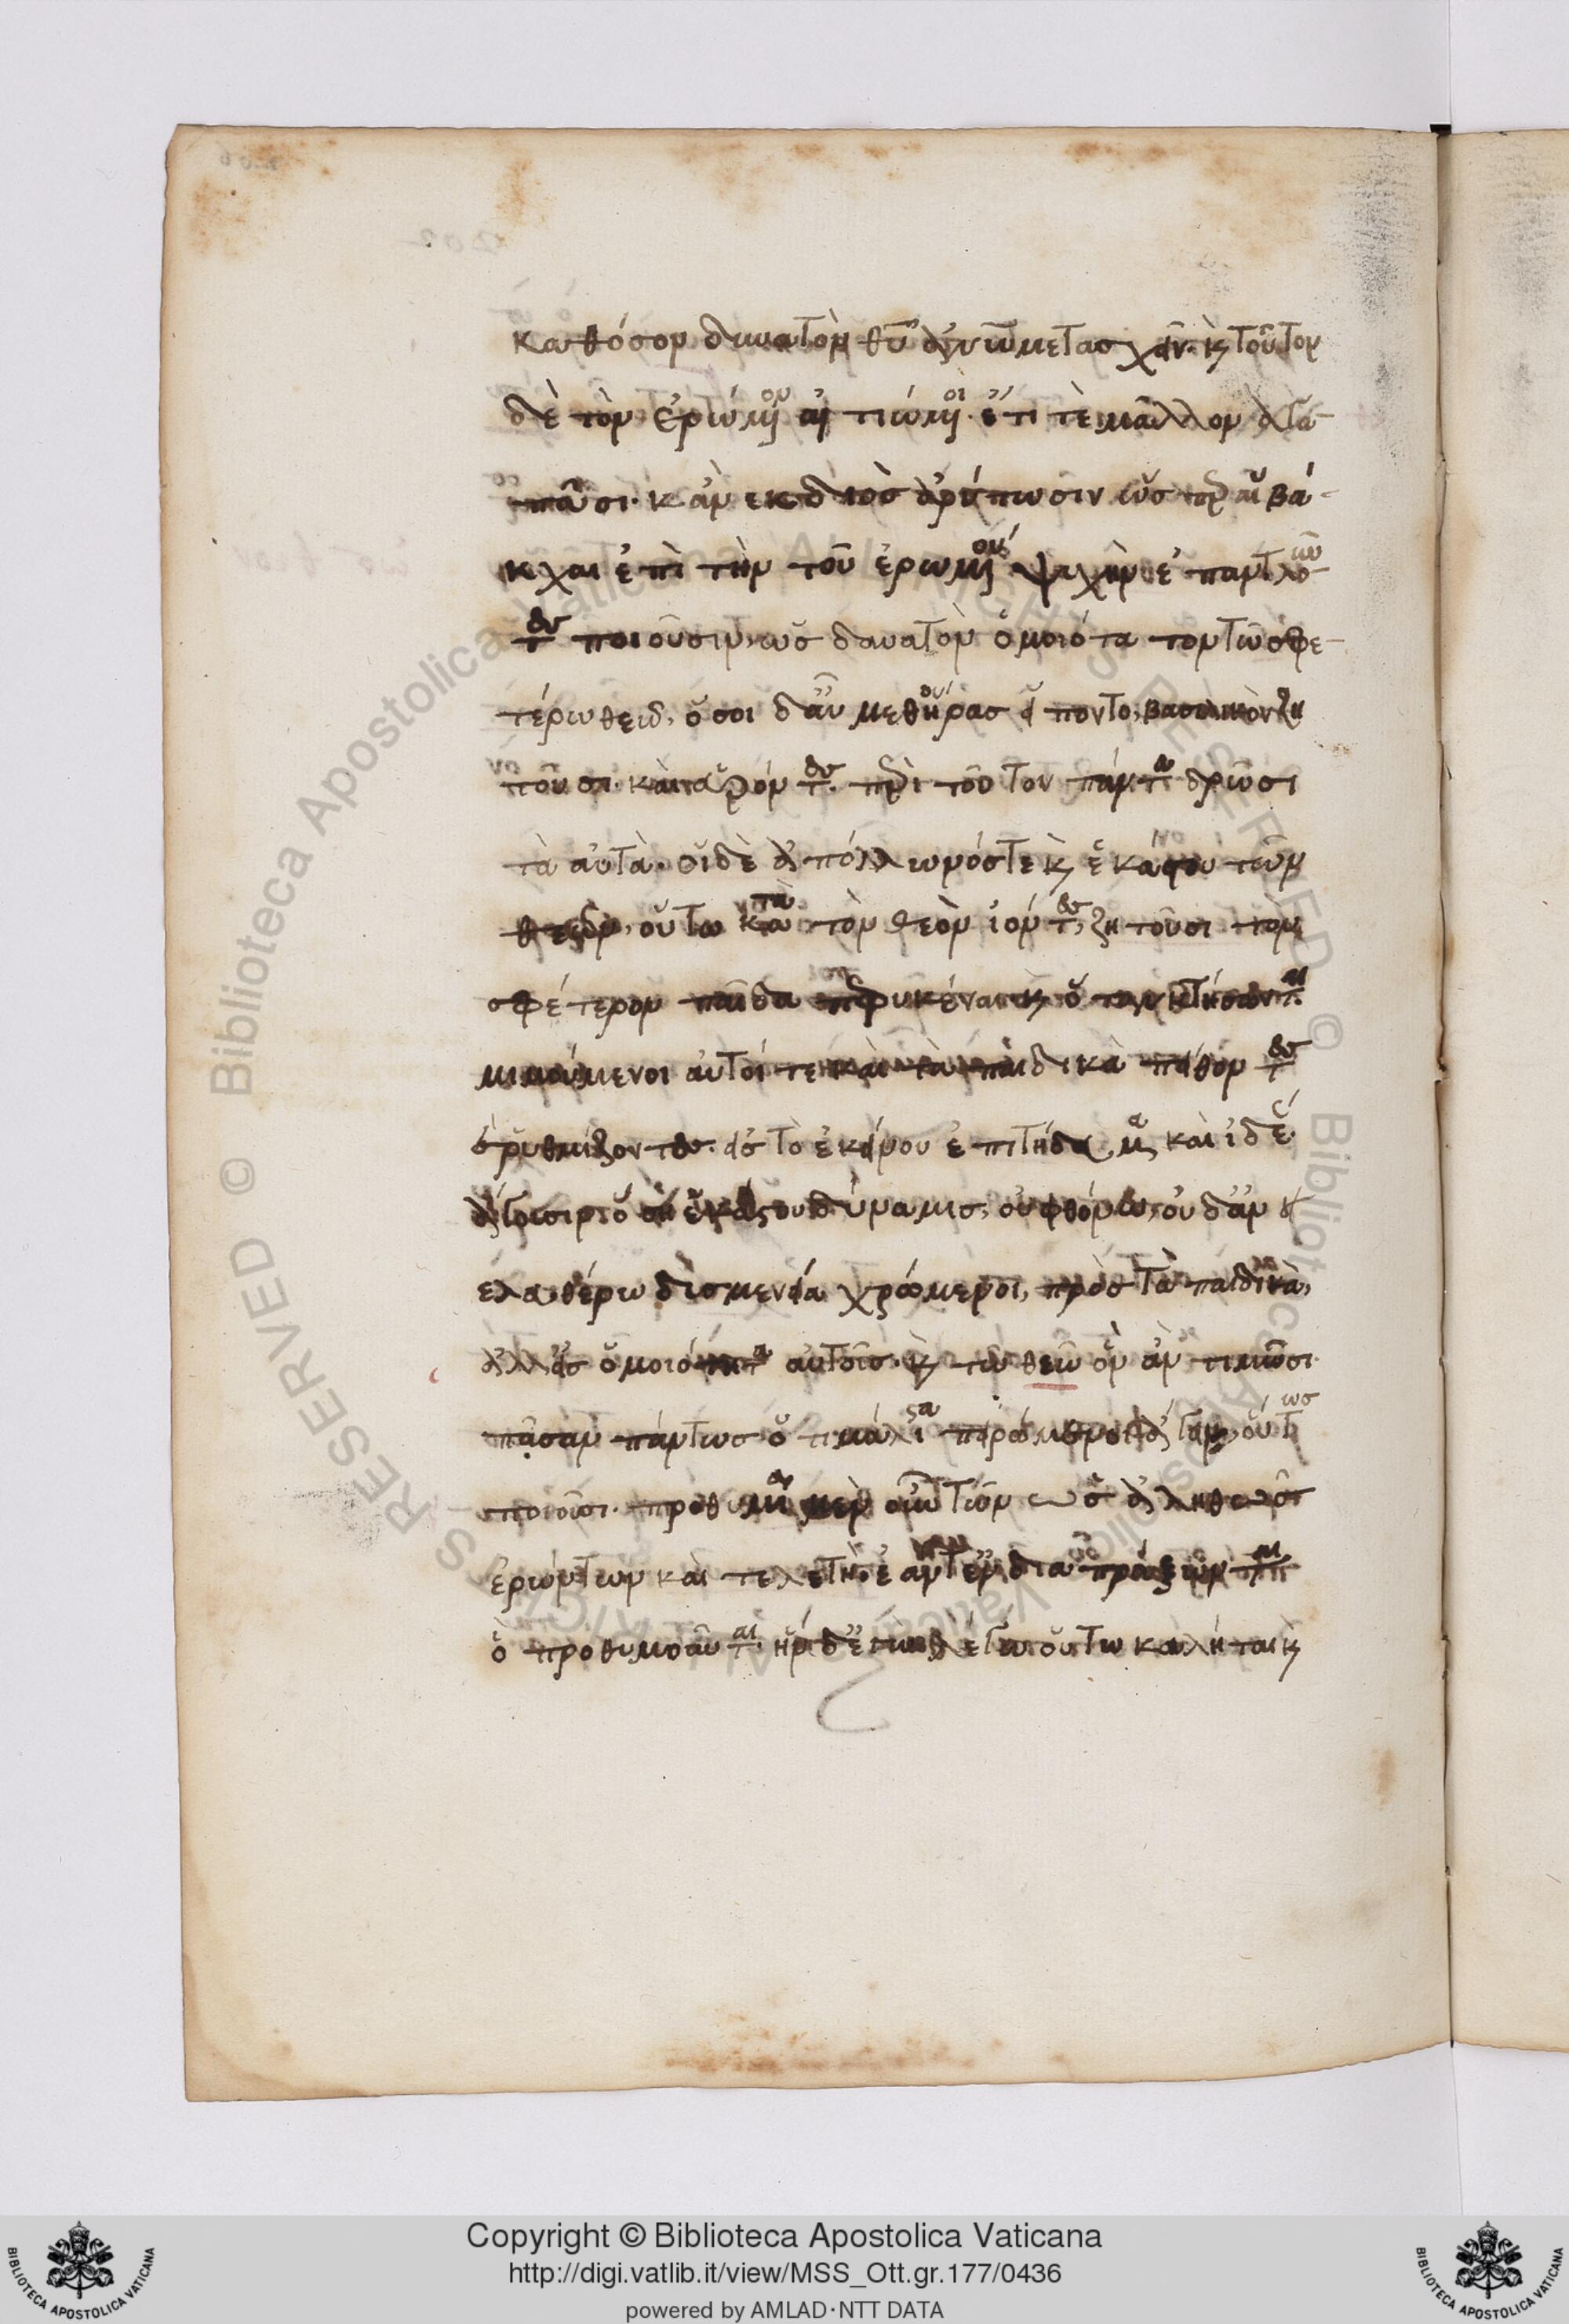 καθόσον δυνατὸν θυ ἀνω μετασχεῖν· κ τούτου
δὲ τὸν ἐρώμου αἰτιώμοι· ἔτι τὲ μᾶλλον ἀγα-
πῶσι· κἀν εκ διὸς ἀρύτωσιν ὥσπερ αἱ βά-
κχαι ἐπὶ τὴν τοῦ ἐρωμου ψυχὴν ἐπαντλοῦν
τες ποιοῦσιν, ὡς δυνατὸν ὁμοιότατον τῶ σφε-
τέρω θεῶ, ὅσοι δ' αὖ μεθ' ἥρας εἵποντο, βασιλικὸν ζη
τοῦσι· καὶ εὑρόντες· περὶ τοῦτον πάντα δρῶσι
τὰ αὐτὰ· οἱ δὲ ἀπόλλωνός τε κ ἑκάστου τῶν
θεῶν, οὕτω κατὰ τὸν θεὸν ἰόντες, ζητοῦσι τὸν
σφέτερον παῖδα πεφυκέναι κ ὅταν κτήσωνται
μιμούμενοι αὐτοί τε καὶ τὰ παιδικὰ πείθοντες
ῥυθμίζοντες· εἰς τὸ ἐκείνου ἐπιτήδευμα καὶ ἰδέ
ἄγουσιν ὅση ἑκάστου δύναμις, οὐ φθόνω, οὐδ' ἀν
ελευθέρω δυσμενεία χρώμενοι, πρὸς τὰ παιδικὰ,
ἀλλ' εἰς ὁμοιότητα αὐτοῖς· κ τῶ θεῶ ὃν ἀν τιμῶσι·
πᾶσαν πάντως ὅτι μάλιστα πειρώμενοι ἄγειν, οὕτως
ποιοῦσι· προθυμία μὲν οὖν τῶν ὡς ἀληθῶς
ἐρώντων καὶ τελετὴ· ἐάν διαπράξωνται
ὃ προθυμοῦνται· ἥν λέγω οὕτω καλή ται κ
Copyright © Biblioteca Apostolica Vaticana
http://digi.vatlib.it/view/MSS_Ott.gr.177/0436
powered by AMLAD·NTT DATA